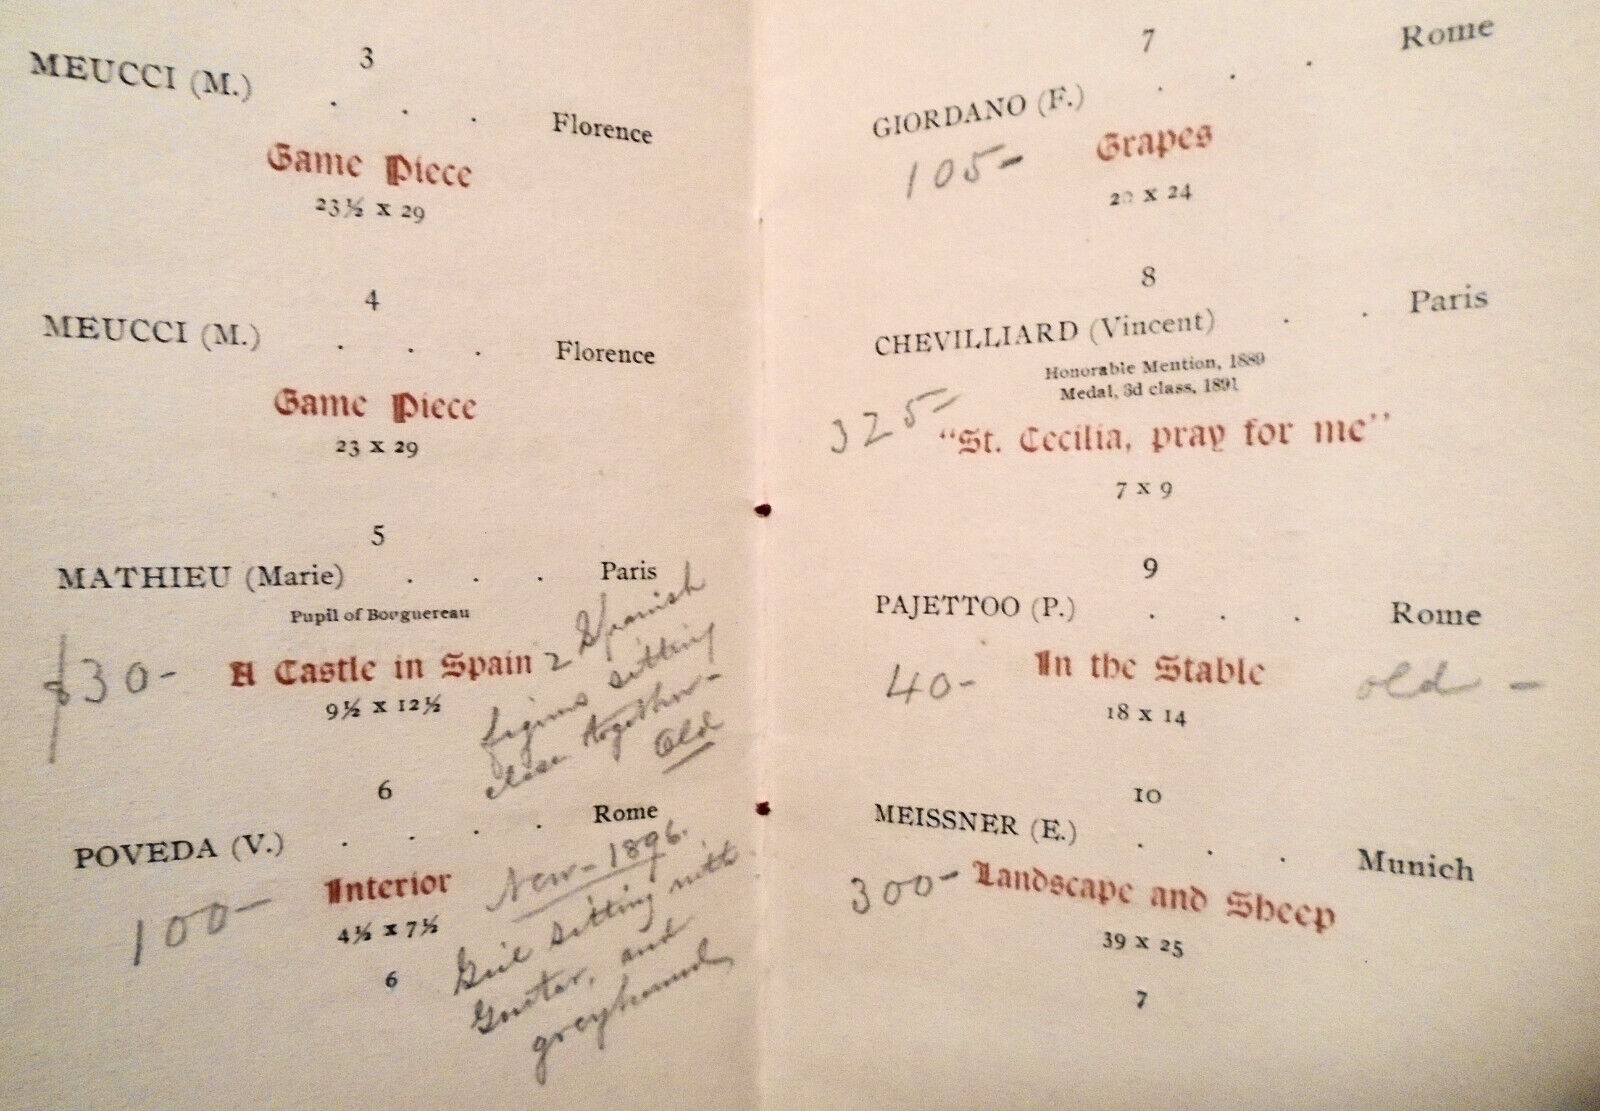 3
MEUCCI (M.) . . . Florence
Game Piece
23½ x 29
4
MEUCCI (M.) . . . Florence
Game Piece
23 x 29
5
MATHIEU (Marie) . . . Paris
Pupil of Bouguereau
$30- A Castle in Spain 2 Spanish
figures sitting
close together-
Old
9½ x 12½
6
POVEDA (V.) . . . . Rome
100- Interior New-1896.
4½ x 7½
Girl sitting with
Guitar, and
greyhound
6
7
GIORDANO (F.) . . . Rome
105- Grapes
20 x 24
8
CHEVILLIARD (Vincent) . . Paris
Honorable Mention, 1889
Medal, 3d class, 1891
325- "St. Cecilia, pray for me"
7 x 9
9
PAJETTOO (P.) . . . Rome
40- In the Stable old -
18 x 14
10
MEISSNER (E.) . . . Munich
300- Landscape and Sheep
39 x 25
7